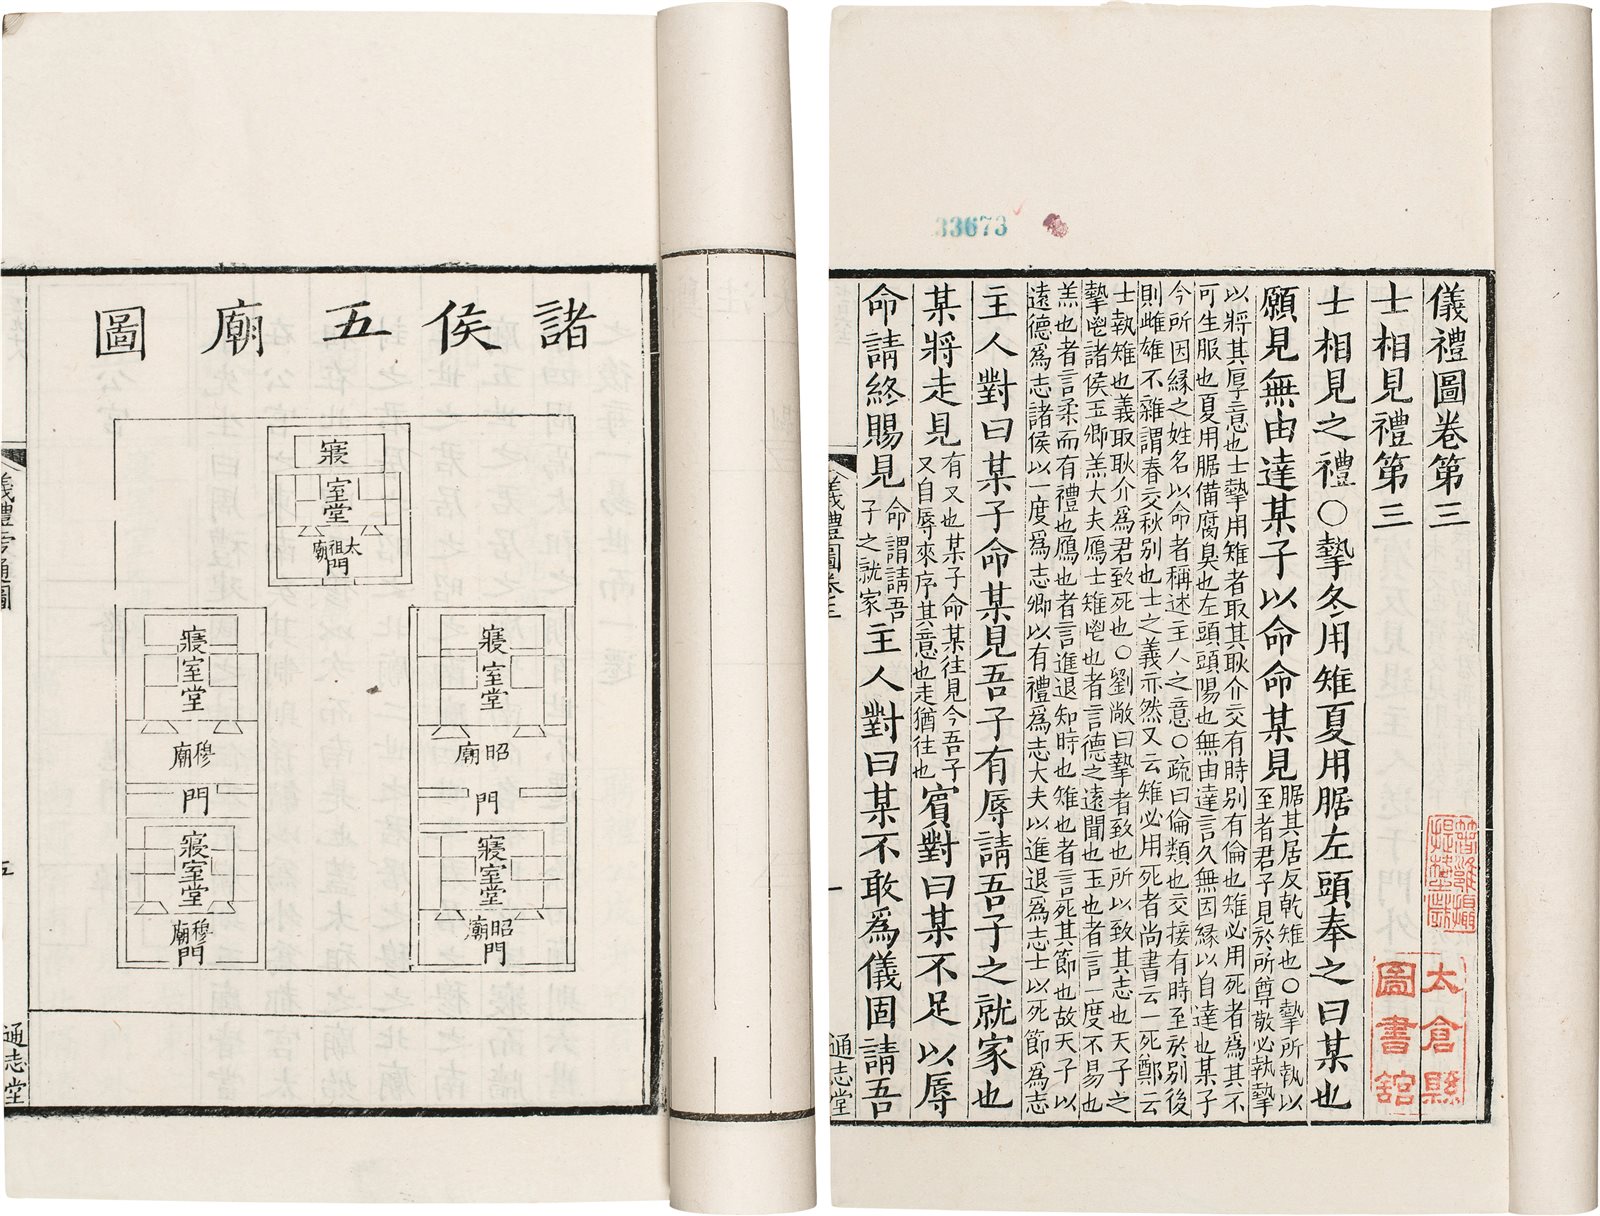 33673
儀禮圖卷第三
士相見禮第三
太倉縣
圖書舘
士相見之禮○摯冬用雉夏用腒左頭奉之曰某也
願見無由達某子以命命某見
腒其居反乾雉也○摯所執以
至者君子見於所尊敬必執摯
以將其厚意也士摯用雉者取其耿介交有時别有倫也雉必用死者為其不
可生服也夏用腒備腐臭也左頭頭陽也無由達言久無因縁以自達也某子
今所因縁之姓名以命者稱述主人之意○疏曰倫類也交接有時至於别後
則雌雄不雜謂春交秋别也士之義亦然又云雉必用死者尚書云一死鄭云
士執雉也義取耿介為君致死也○劉敞曰摯者致也所以致其志也天子之
摯鬯諸侯玉卿羔大夫鴈士雉鬯也者言德之遠聞也玉也者言一度不易也
羔也者言柔而有禮也鴈也者言進退知時也雉也者言死其節也故天子以
遠德為志諸侯以一度為志卿以有禮為志大夫以進退為志士以死節為志
主人對曰某子命某見吾子有辱請吾子之就家也
某將走見
有又也某子命某往見今吾子
又自辱來序其意也走猶往也
賓對曰某不足以辱
命請終賜見
命謂請吾
子之就家
主人對曰某不敢為儀固請吾
儀禮圖卷三
一
通志堂
諸侯五廟圖
寢
室
堂
太祖廟
門
寢
室
堂
昭廟
門
寢
室
堂
昭廟
門
寢
室
堂
穆廟
門
寢
室
堂
穆廟
門
儀禮旁通圖
五
通志堂